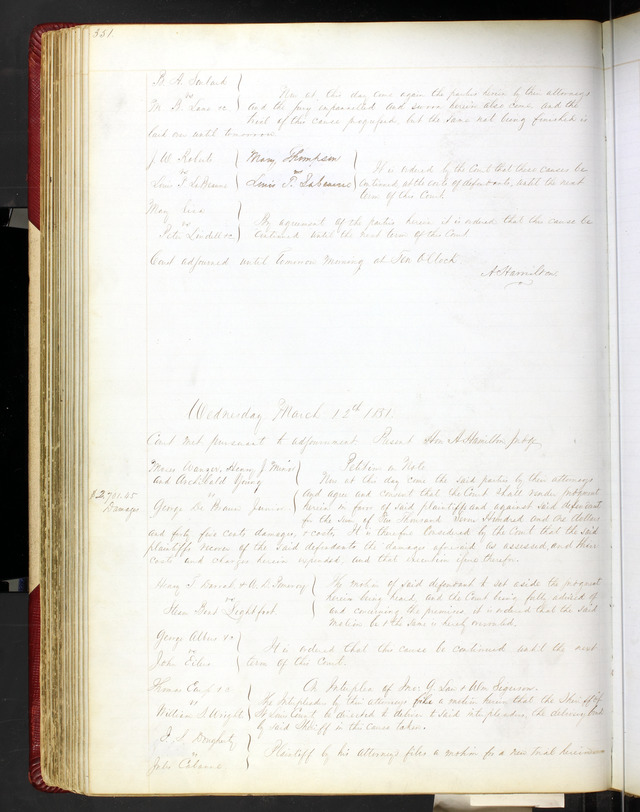 331
Now at this day come again the parties herein by their attorneys
vs
and the jury empannelled and sworn herein also come and the
trial of this cause progressed, but the same not being finished is
laid over until tomorrow
J. W. Roberts Mary Thompson
vs vs It is ordered by the Court that these causes be
Louis T. LaBeaume Louis T. Labeaume continued at the costs of defendants, until the next
term of this Court
Mary
vs By agreement of the parties herein it is ordered that this cause be
Peter Lindell continued until the next term of this Court
Court adjourned until tomorrow morning at Ten O'Clock
A Hamilton
Wednesday March 12th 1851.
Court met pursuant to adjournment Present Hon A. Hamilton Judge
Henry J. Petition on Note
and Archibald Now at this day come the said parties by their attorneys
$2,701.45 vs and agree and consent that the Court shall render judgment
Damages George Junior herein in favor of said plaintiffs and against said defendant
for the sum of Two Thousand Seven Hundred and One dollars
and forty five cents damages, & costs. It is therefore Considered by the Court that the said
plaintiffs recover of the said defendants the damages aforesaid as assessed, and their
costs and charges herein expended, and that execution issue therefor.
Henry S. The motion of said defendant to set aside the judgment
vs herein being heard, and the Court being fully advised of
Steam Boat Lightfoot and concerning the premises, it is ordered that the said
motion be & the same is hereby overruled.
George
vs It is ordered that this cause be continued until the next
John term of this Court.
Thomas On Interplea of Wm
vs The Interpleaders by their attorneys file a motion herein that the Sheriff of
William S. Wright St Louis County be directed to deliver to said interpleaders, the delivery bond
by said Sheriff in this cause taken.
Dougherty
vs Plaintiff by his attorney files a motion for a new trial herein
John Cabanne